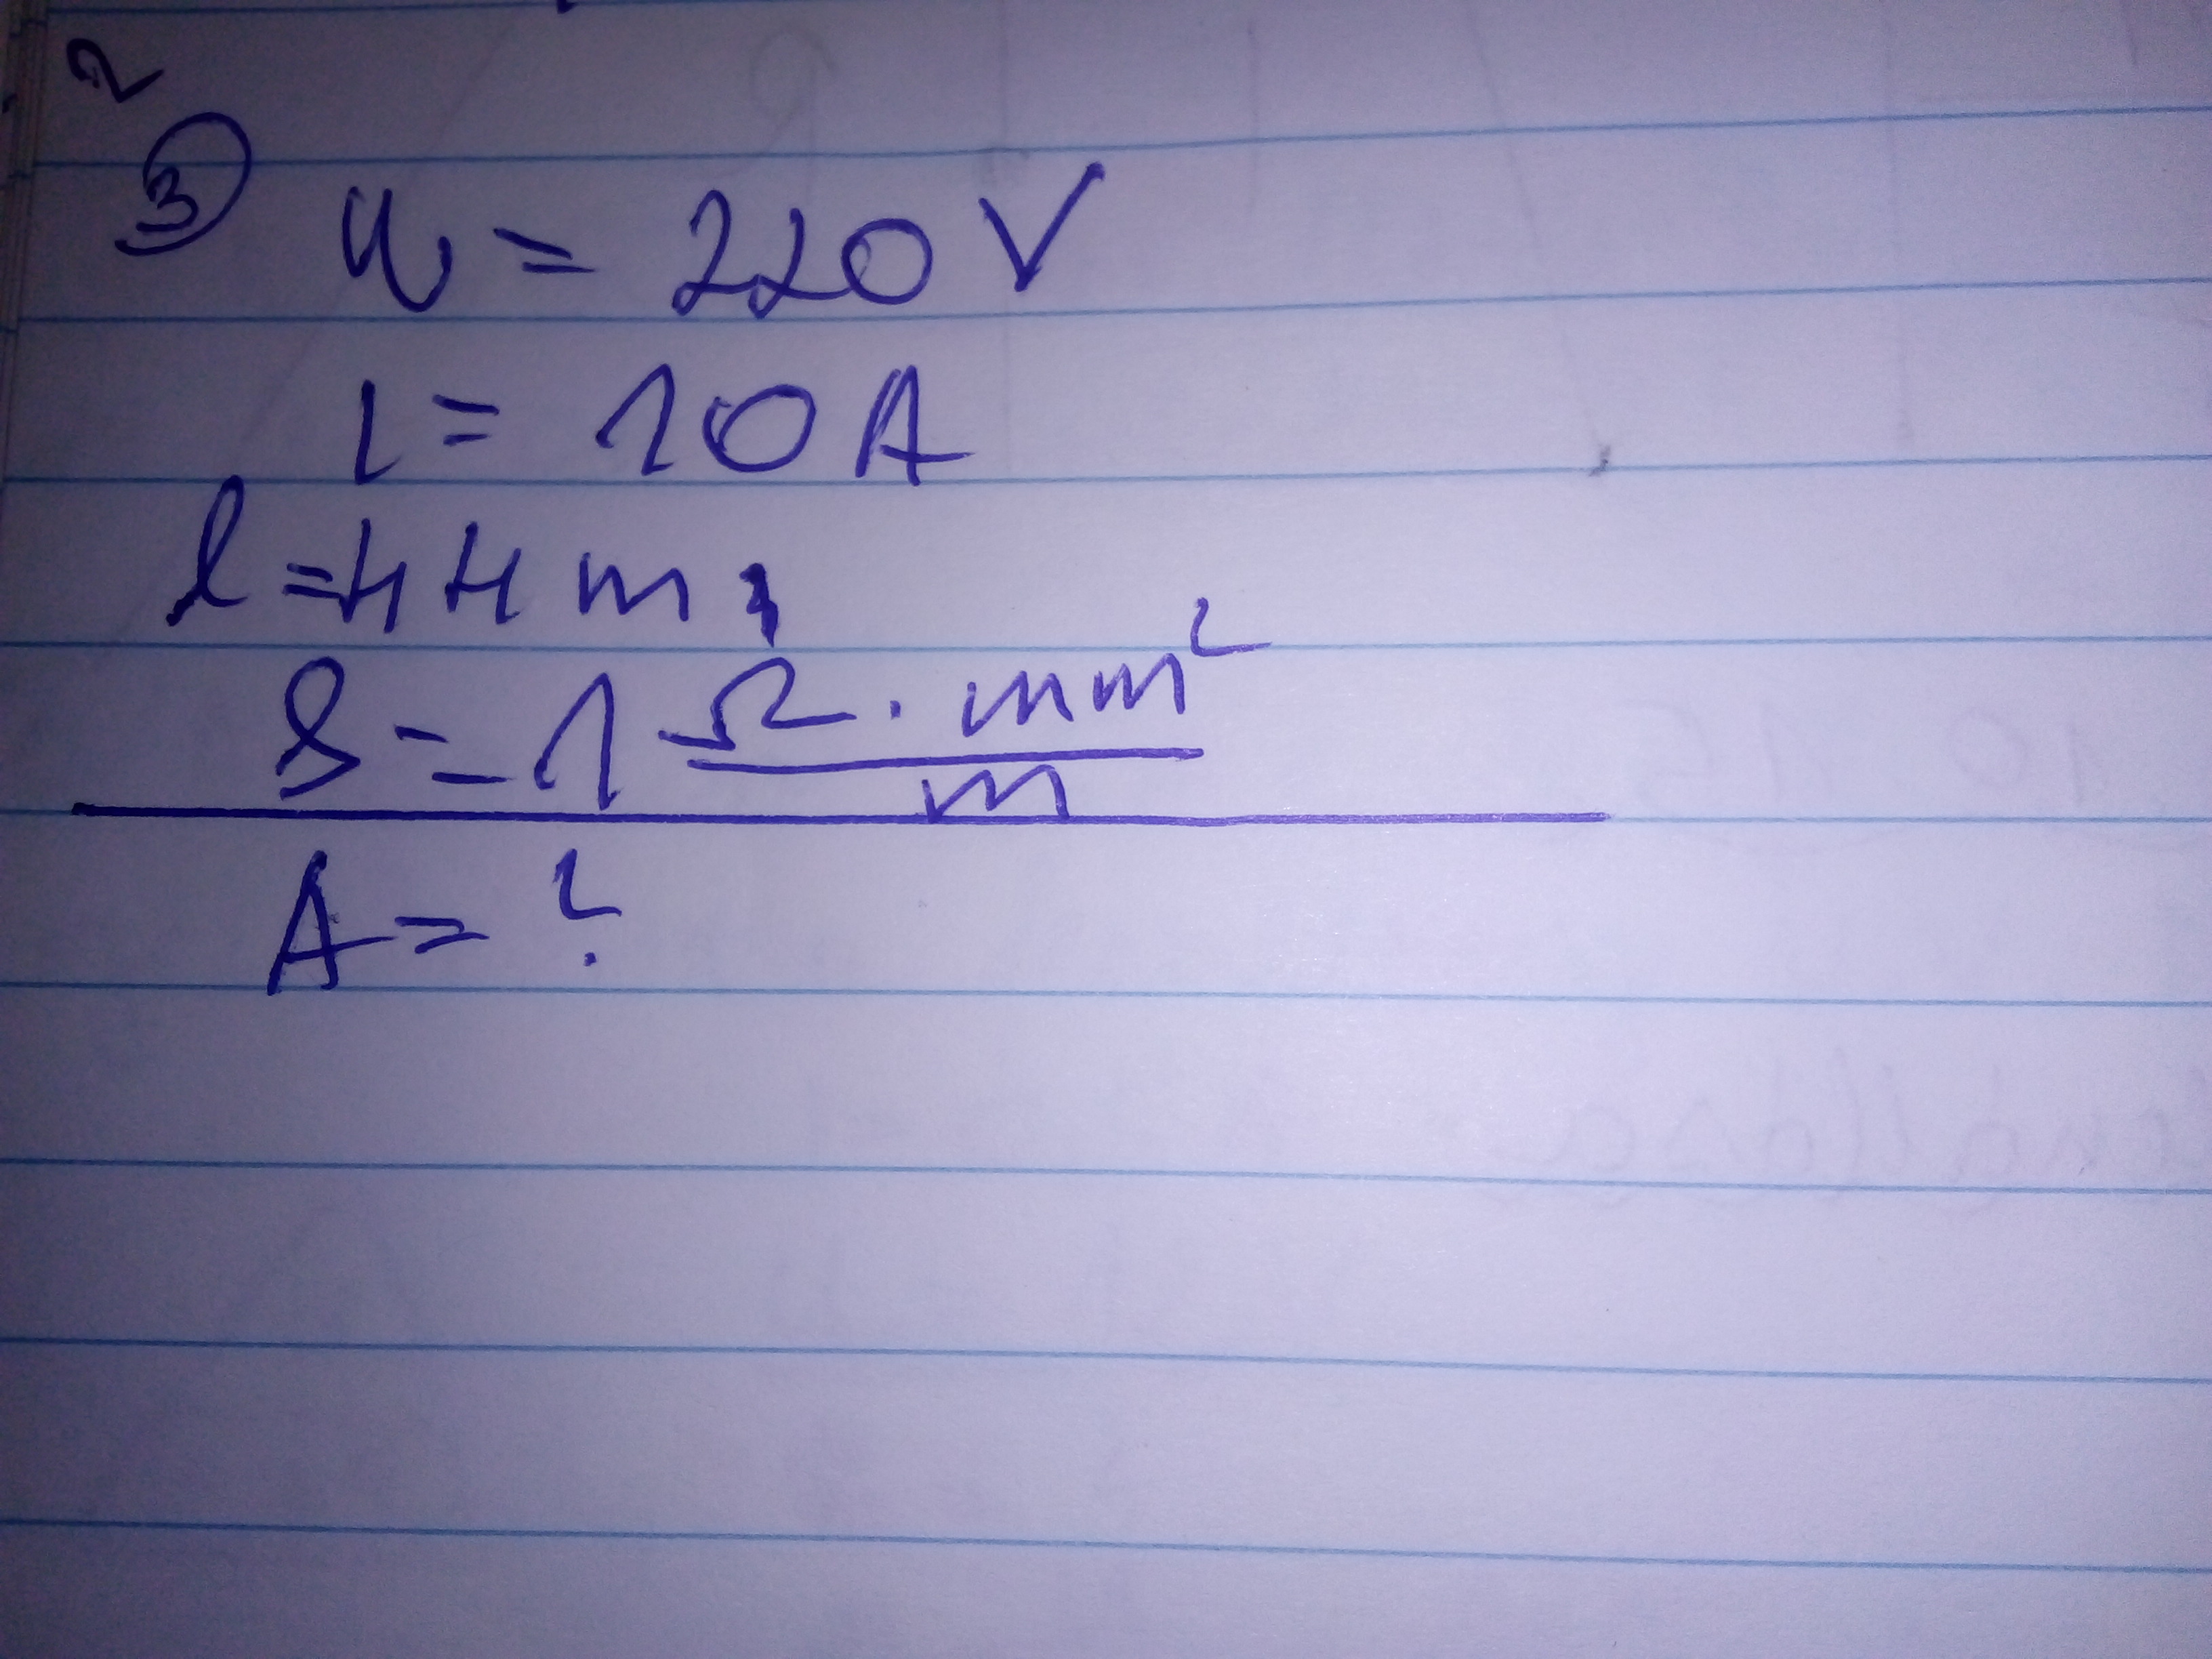 2
③ U = 220 V
I = 10 A
l = 44 m,
ρ = 1 Ω · mm²
m
A = ?